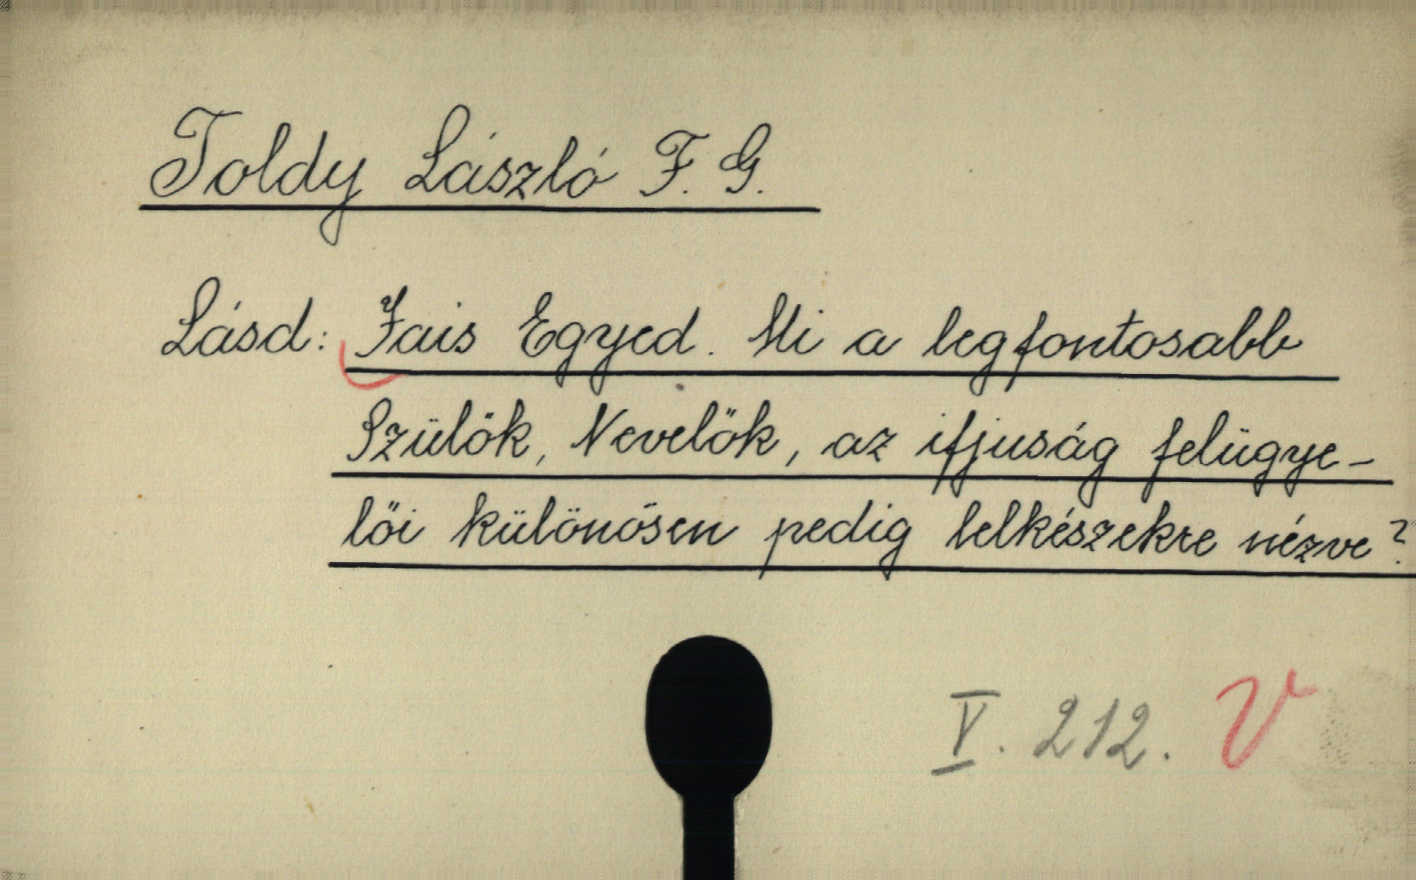 Toldy László F. G.
Lásd: Jais Egyed. Mi a legfontosabb
Szülők, Nevelők, az ifjuság felügye-
lői különösen pedig lelkészekre nézve?
V. 212. V